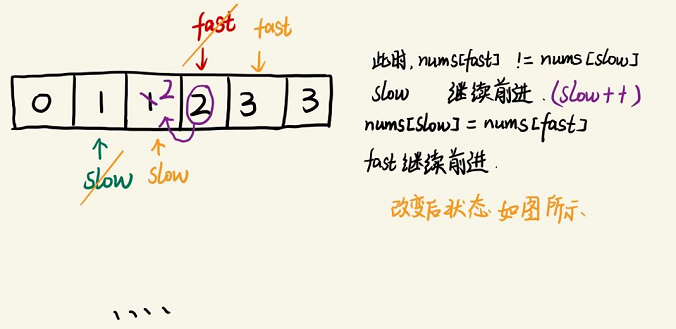 fast fast
0 1 1 2 2 3 3
slow slow
此时, nums[fast] != nums[slow]
slow 继续前进. (slow++)
nums[slow] = nums[fast]
fast继续前进.
改变后状态如图所示、